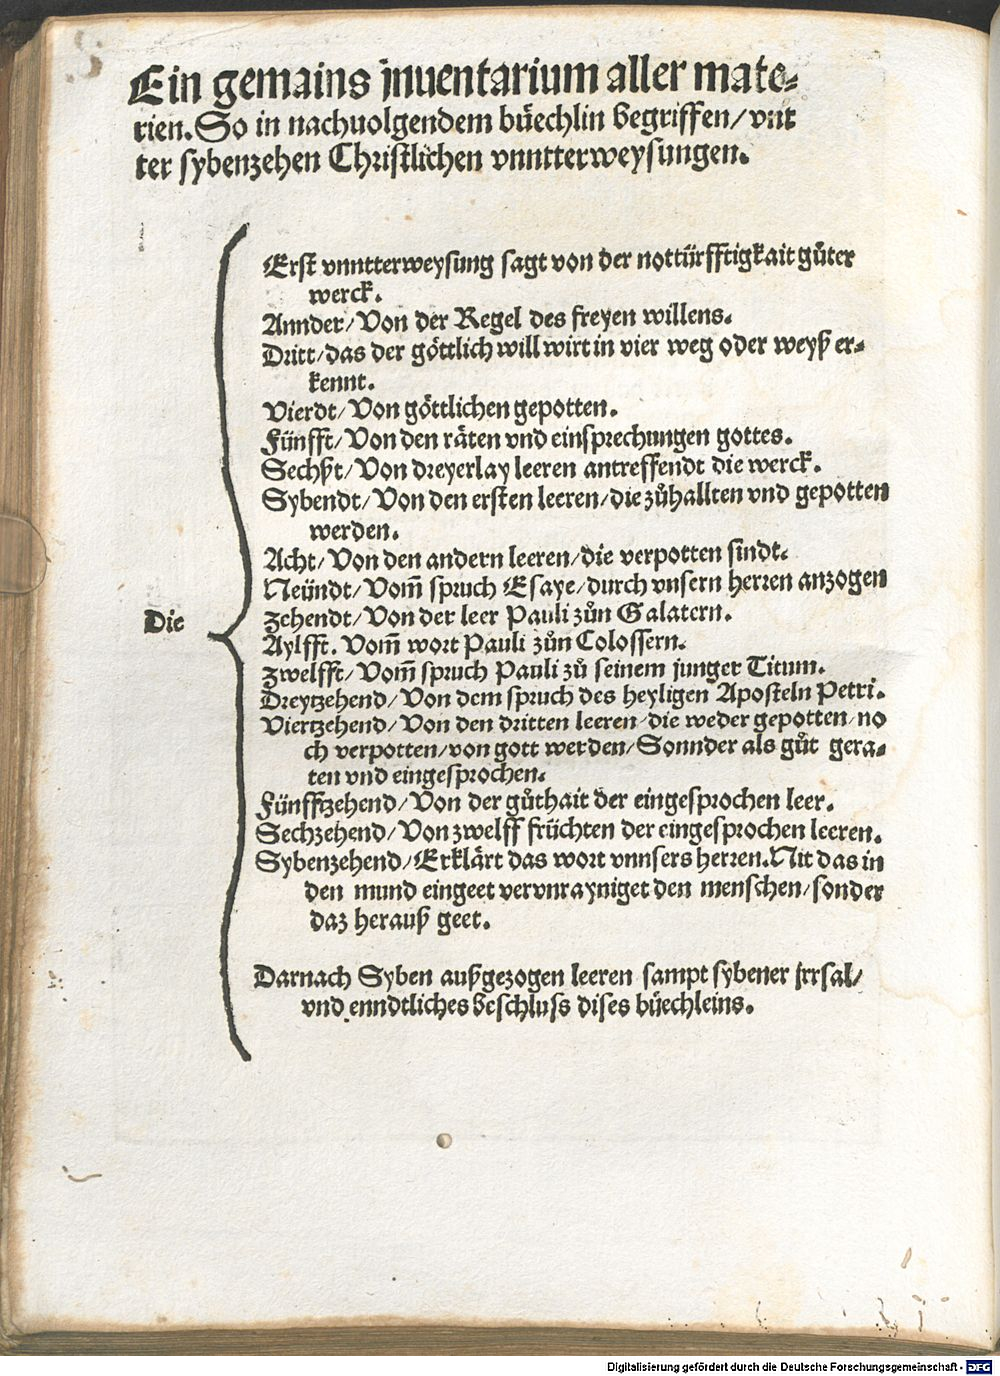 Ein gemains jnuentarium aller mate-
rien. So in nachuolgendem büechlin begriffen/ vnt
ter sybenzehen Christlichen vnntterweysungen.
Erst vnntterweysung sagt von der nottürfftigkait gůter
werck.
Annder/ Von der Regel des freyen willens.
Dritt/ das der göttlich will wirt in vier weg oder weyß er-
kennt.
Vierdt/ Von göttlichen gepotten.
Fünfft/ Von den räten vnd einsprechungen gottes.
Sechßt/ Von dreyerlay leeren antreffendt die werck.
Sybendt/ Von den ersten leeren/ die zůhallten vnd gepotten
werden.
Acht/ Von den andern leeren/ die verpotten sindt.
Neündt/ Vom̃ spruch Esaye/ durch vnsern herren anzogen
Zehendt/ Von der leer Pauli zůn Galatern.
Die
Aylfft. Vom̃ wort Pauli zůn Colossern.
Zwelfft/ Vom̃ spruch Pauli zů seinem junger Titum.
Dreytzehend/ Von dem spruch des heyligen Aposteln Petri.
Viertzehend/ Von den dritten leeren/ die weder gepotten/ no
ch verpotten/ von gott werden/ Sonnder als gůt gera-
ten vnd eingesprochen.
Fünfftzehend/ Von der gůthait der eingesprochen leer.
Sechzehend/ Von zwelff früchten der eingesprochen leeren.
Sybenzehend/ Erklärt das wort vnnsers herren. Nit das in
den mund eingeet vervnrayniget den menschen/ sonder
daz herauß geet.
Darnach Syben außgezogen leeren sampt sybener jrrsal/
vnd enndtliches beschluss dises büechleins.
Digitalisierung gefördert durch die Deutsche Forschungsgemeinschaft - DFG